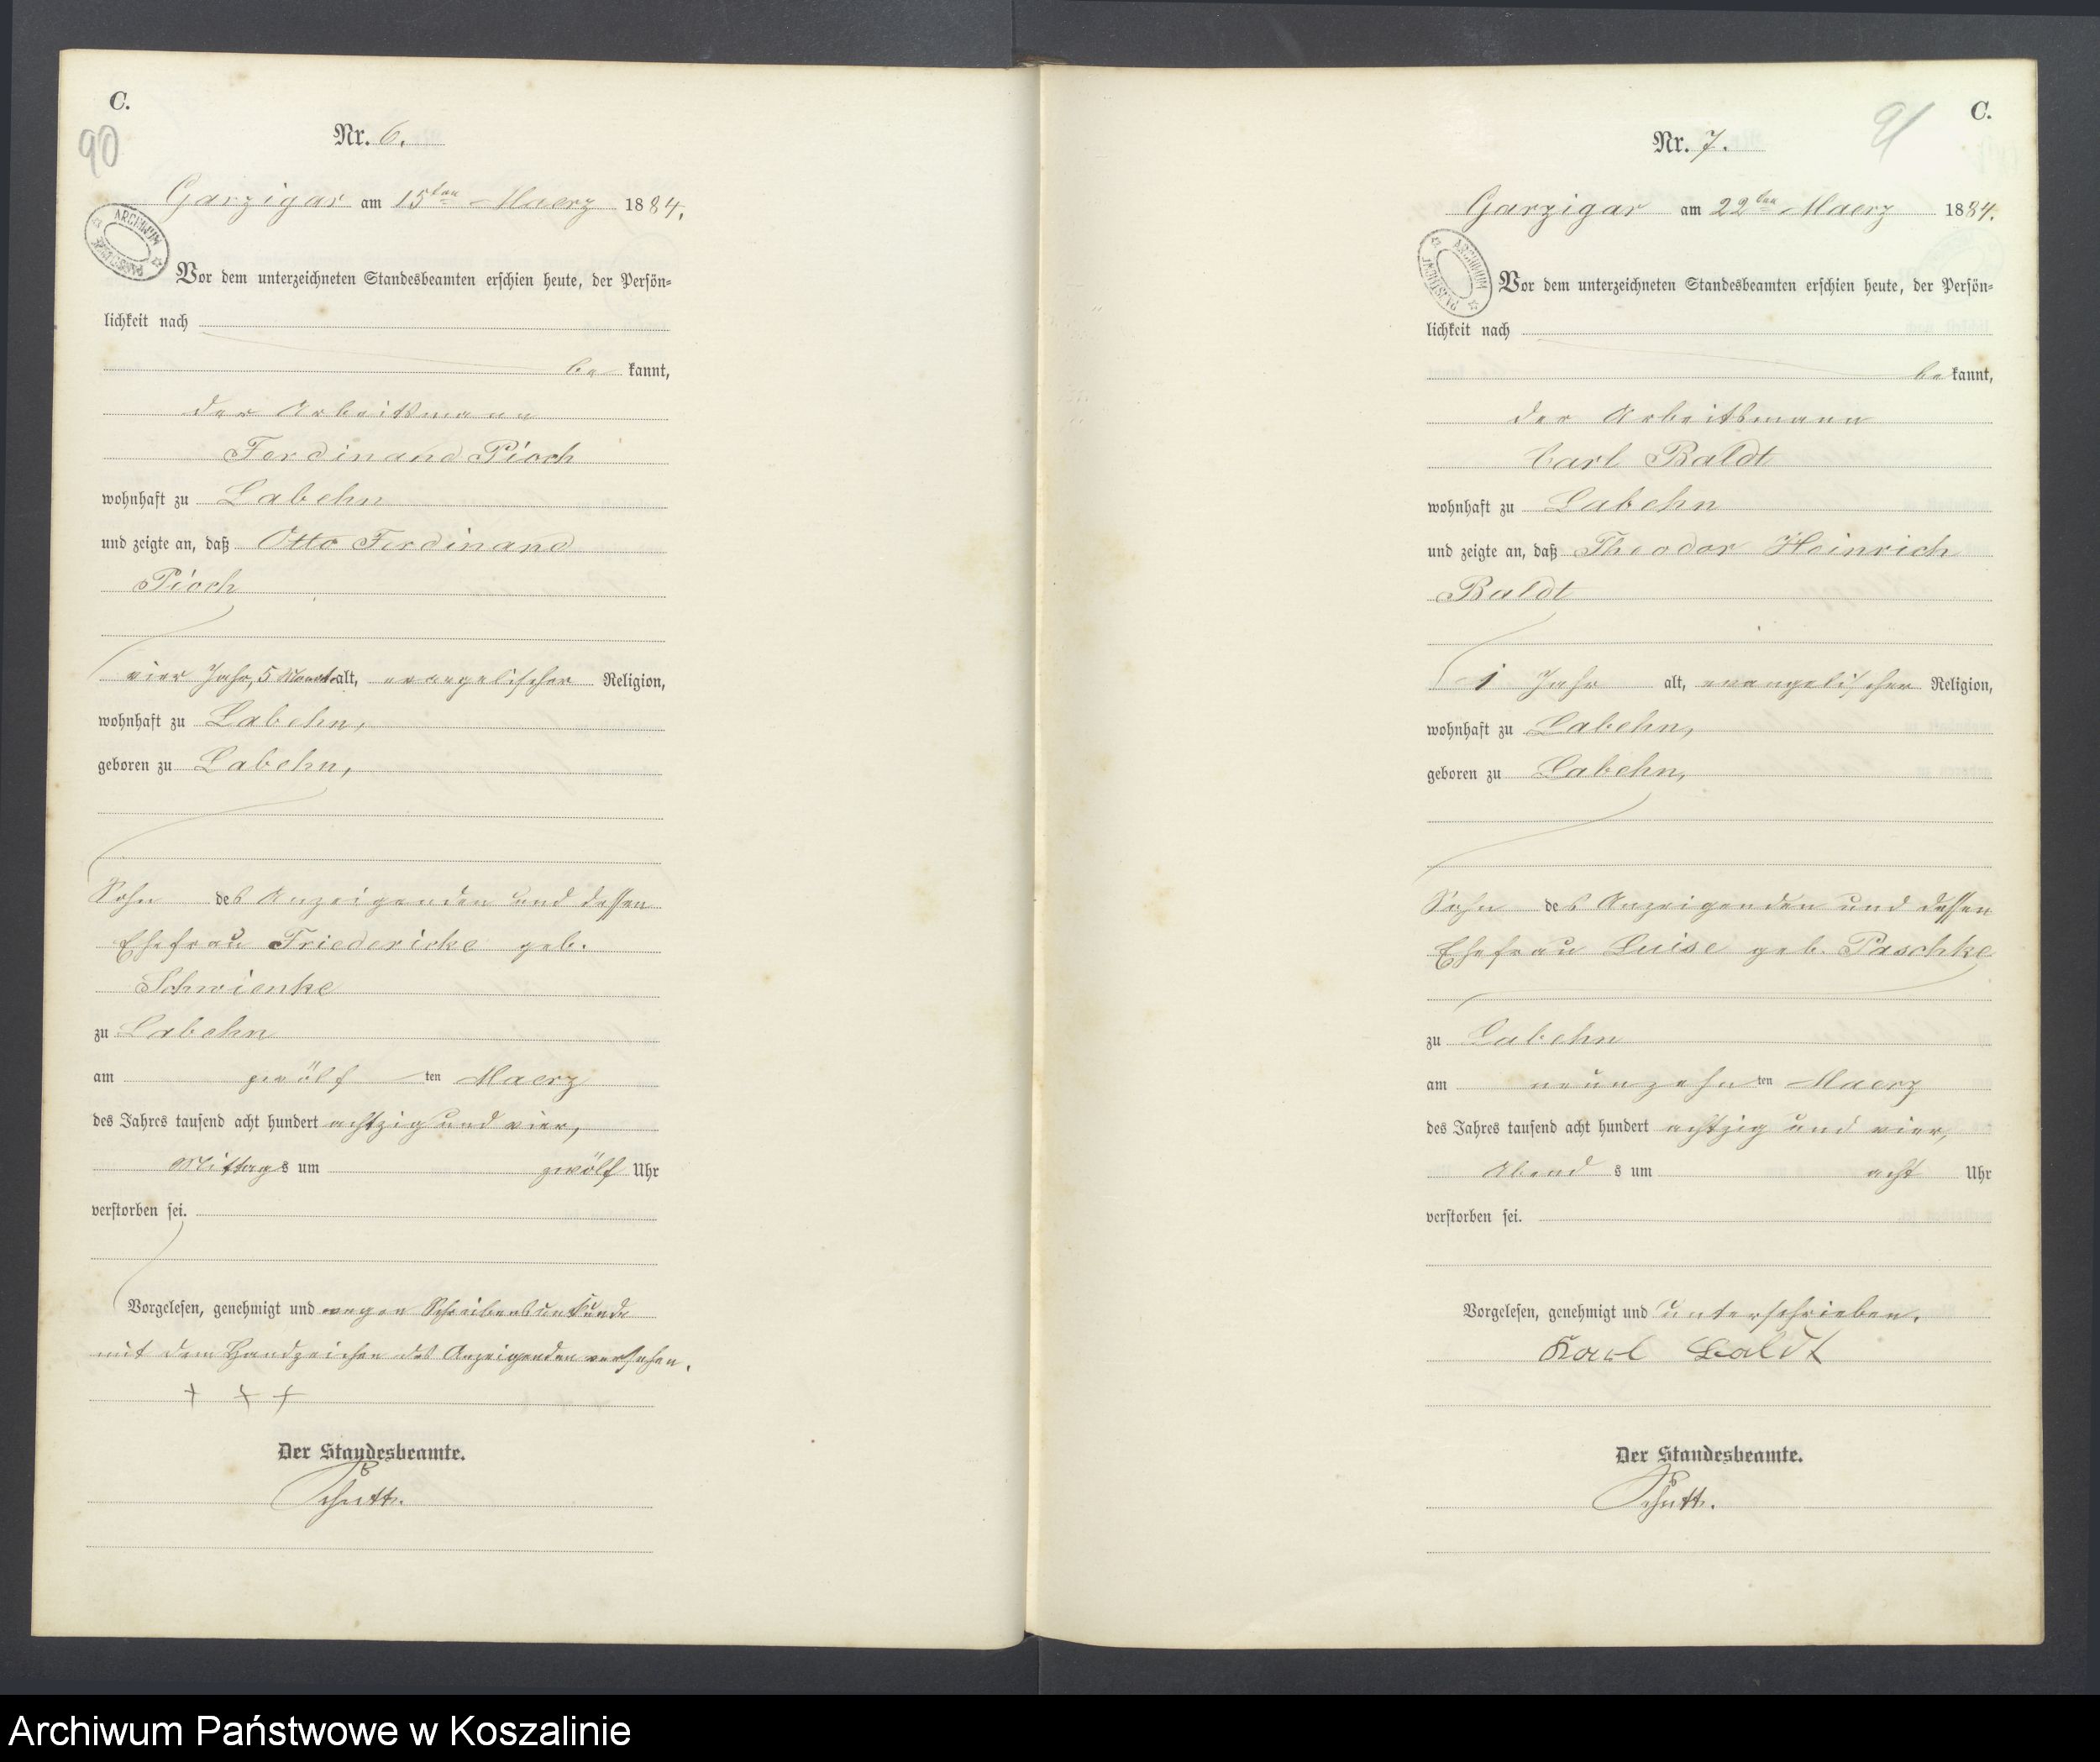 C.
90
Nr. 6.
Garzigar am 15ten Maerz 1884.
ARCHIWUM PAŃSTWOWE
Vor dem unterzeichneten Standesbeamten erschien heute, der Persön-
lichkeit nach
be kannt,
der Arbeitsmann
Ferdinand Pioch
wohnhaft zu Labehn
und zeigte an, daß Otto Ferdinand
Pioch
vier Jahr, 5 Monat alt, evangelischer Religion,
wohnhaft zu Labehn,
geboren zu Labehn,
Sohn des Anzeigenden und dessen
Ehefrau Friedericke geb.
Schwienke
zu Labehn
am zwölf ten Maerz
des Jahres tausend acht hundert achtzig und vier,
Mittags um zwölf Uhr
verstorben sei.
Vorgelesen, genehmigt und wegen Schreibensunkunde
mit dem Handzeichen des Anzeigenden versehen.
+ + +
Der Standesbeamte.
C.
91
Nr. 7.
Garzigar am 22ten Maerz 1884.
ARCHIWUM PAŃSTWOWE
Vor dem unterzeichneten Standesbeamten erschien heute, der Persön-
lichkeit nach
be kannt,
der Arbeitsmann
Carl Baldt
wohnhaft zu Labehn
und zeigte an, daß Theodor Heinrich
Baldt
1 Jahr alt, evangelischer Religion,
wohnhaft zu Labehn,
geboren zu Labehn,
Sohn des Anzeigenden und dessen
Ehefrau Luise geb. Paschke
zu Labehn
am neunzehnten Maerz
des Jahres tausend acht hundert achtzig und vier,
Abend s um acht Uhr
verstorben sei.
Vorgelesen, genehmigt und unterschrieben.
Karl Baldt
Der Standesbeamte.
Archiwum Państwowe w Koszalinie